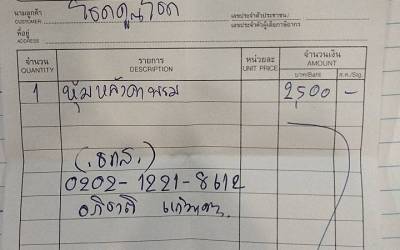 นามลูกค้า
CUSTOMER
โชคคูณโชค
เลขประจำตัวประชาชน/
เลขประจำตัวผู้เสียภาษีอากร
ที่อยู่
ADDRESS
จำนวน รายการ หน่วยละ จำนวนเงิน
QUANTITY DESCRIPTION UNIT PRICE AMOUNT
บาท/Baht ส.ต./Stg.
1 หุ้มหลังคา 2,500 -
(ธกส.)
0202-1221-8612
อภิชาติ